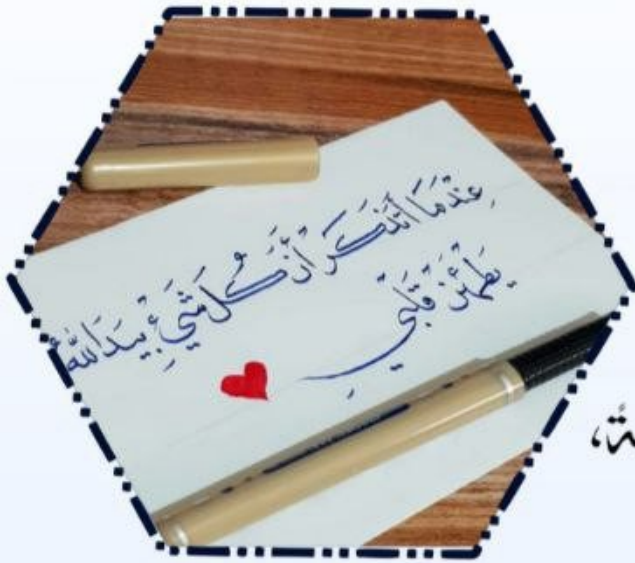 عِنْدَمَا أَتَذَكَرَ أَنَّ كُلَ شَيْءٍ بِيَدَ اللّٰهْ
يَطْمَئِنْ قَلْبِي